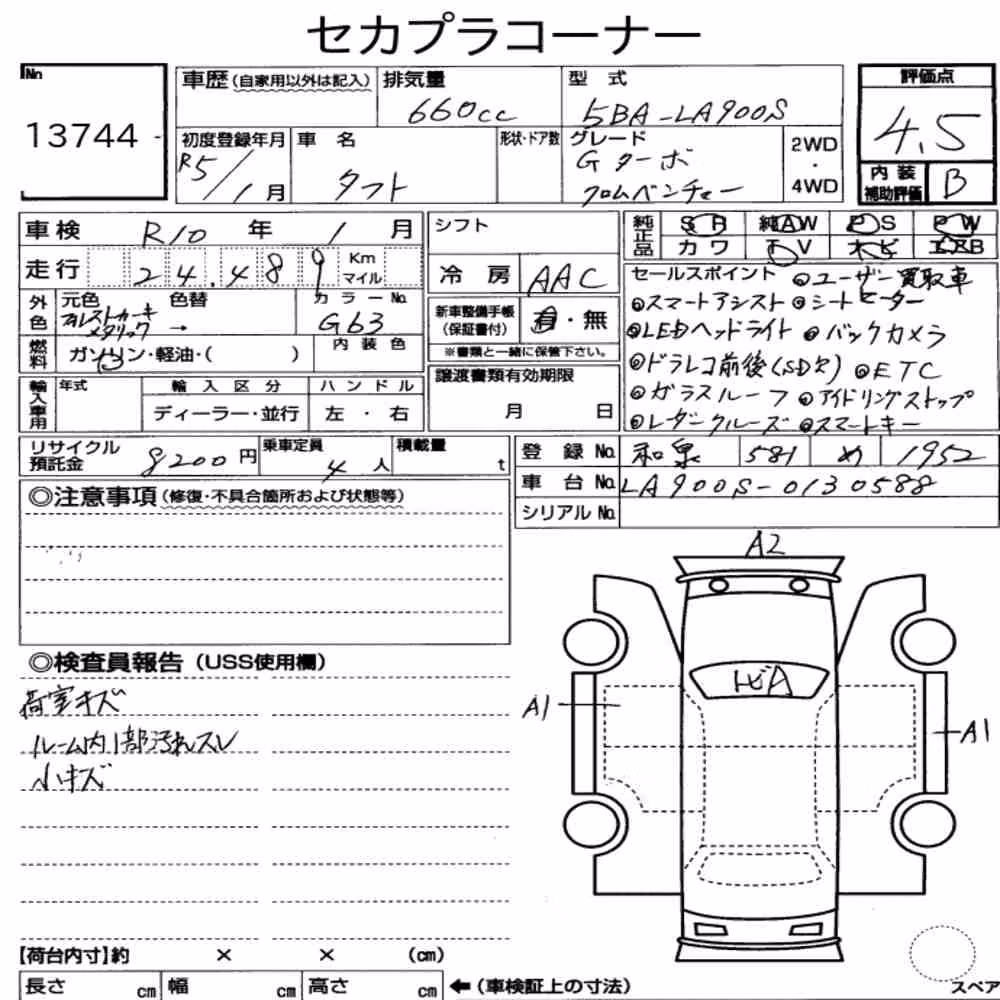 セカプラコーナー
No
13744
車歴(自家用以外は記入)
排気量
660cc
型式
5BA-LA900S
評価点
4.5
初度登録年月
R5/1月
車名
タフト
形状・ドア数
グレード
Gターボ
クロムベンチャー
2WD
・
4WD
内装
補助評価
B
車検 R10年 1月
走行 24,489 Km マイル
外色
元色
フォレストカーキ
メタリック
色替
→
カラーNo.
G63
燃料
ガソリン・軽油・( )
内装色
輸入車用
年式
輸入区分
ディーラー・並行
ハンドル
左・右
シフト
冷房 AAC
新車整備手帳
(保証書付)
有・無
※書類と一緒に保管下さい。
譲渡書類有効期限
月 日
純正品
SR 純AW PS PW
カワ TV ナビ エアB
セールスポイント ◎ユーザー買取車
◎スマートアシスト ◎シートヒーター
◎LEDヘッドライト ◎バックカメラ
◎ドラレコ前後(SD欠) ◎ETC
◎ガラスルーフ ◎アイドリングストップ
◎レダークルーズ ◎スマートキー
リサイクル
預託金
8200円
乗車定員
4人
積載量
t
登録No. 和泉 581 め 1952
車台No. LA900S-0130588
シリアルNo.
◎注意事項(修復・不具合箇所および状態等)
◎検査員報告(USS使用欄)
荷室キズ
ルーム内1部汚れスレ
小キズ
A2
トビA
A1
A1
【荷台内寸】約 × × (cm)
長さ cm 幅 cm 高さ cm
←(車検証上の寸法)
スペア